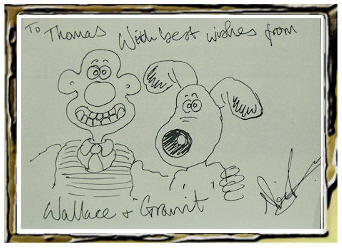 To Thomas With best wishes from
Wallace & Gromit